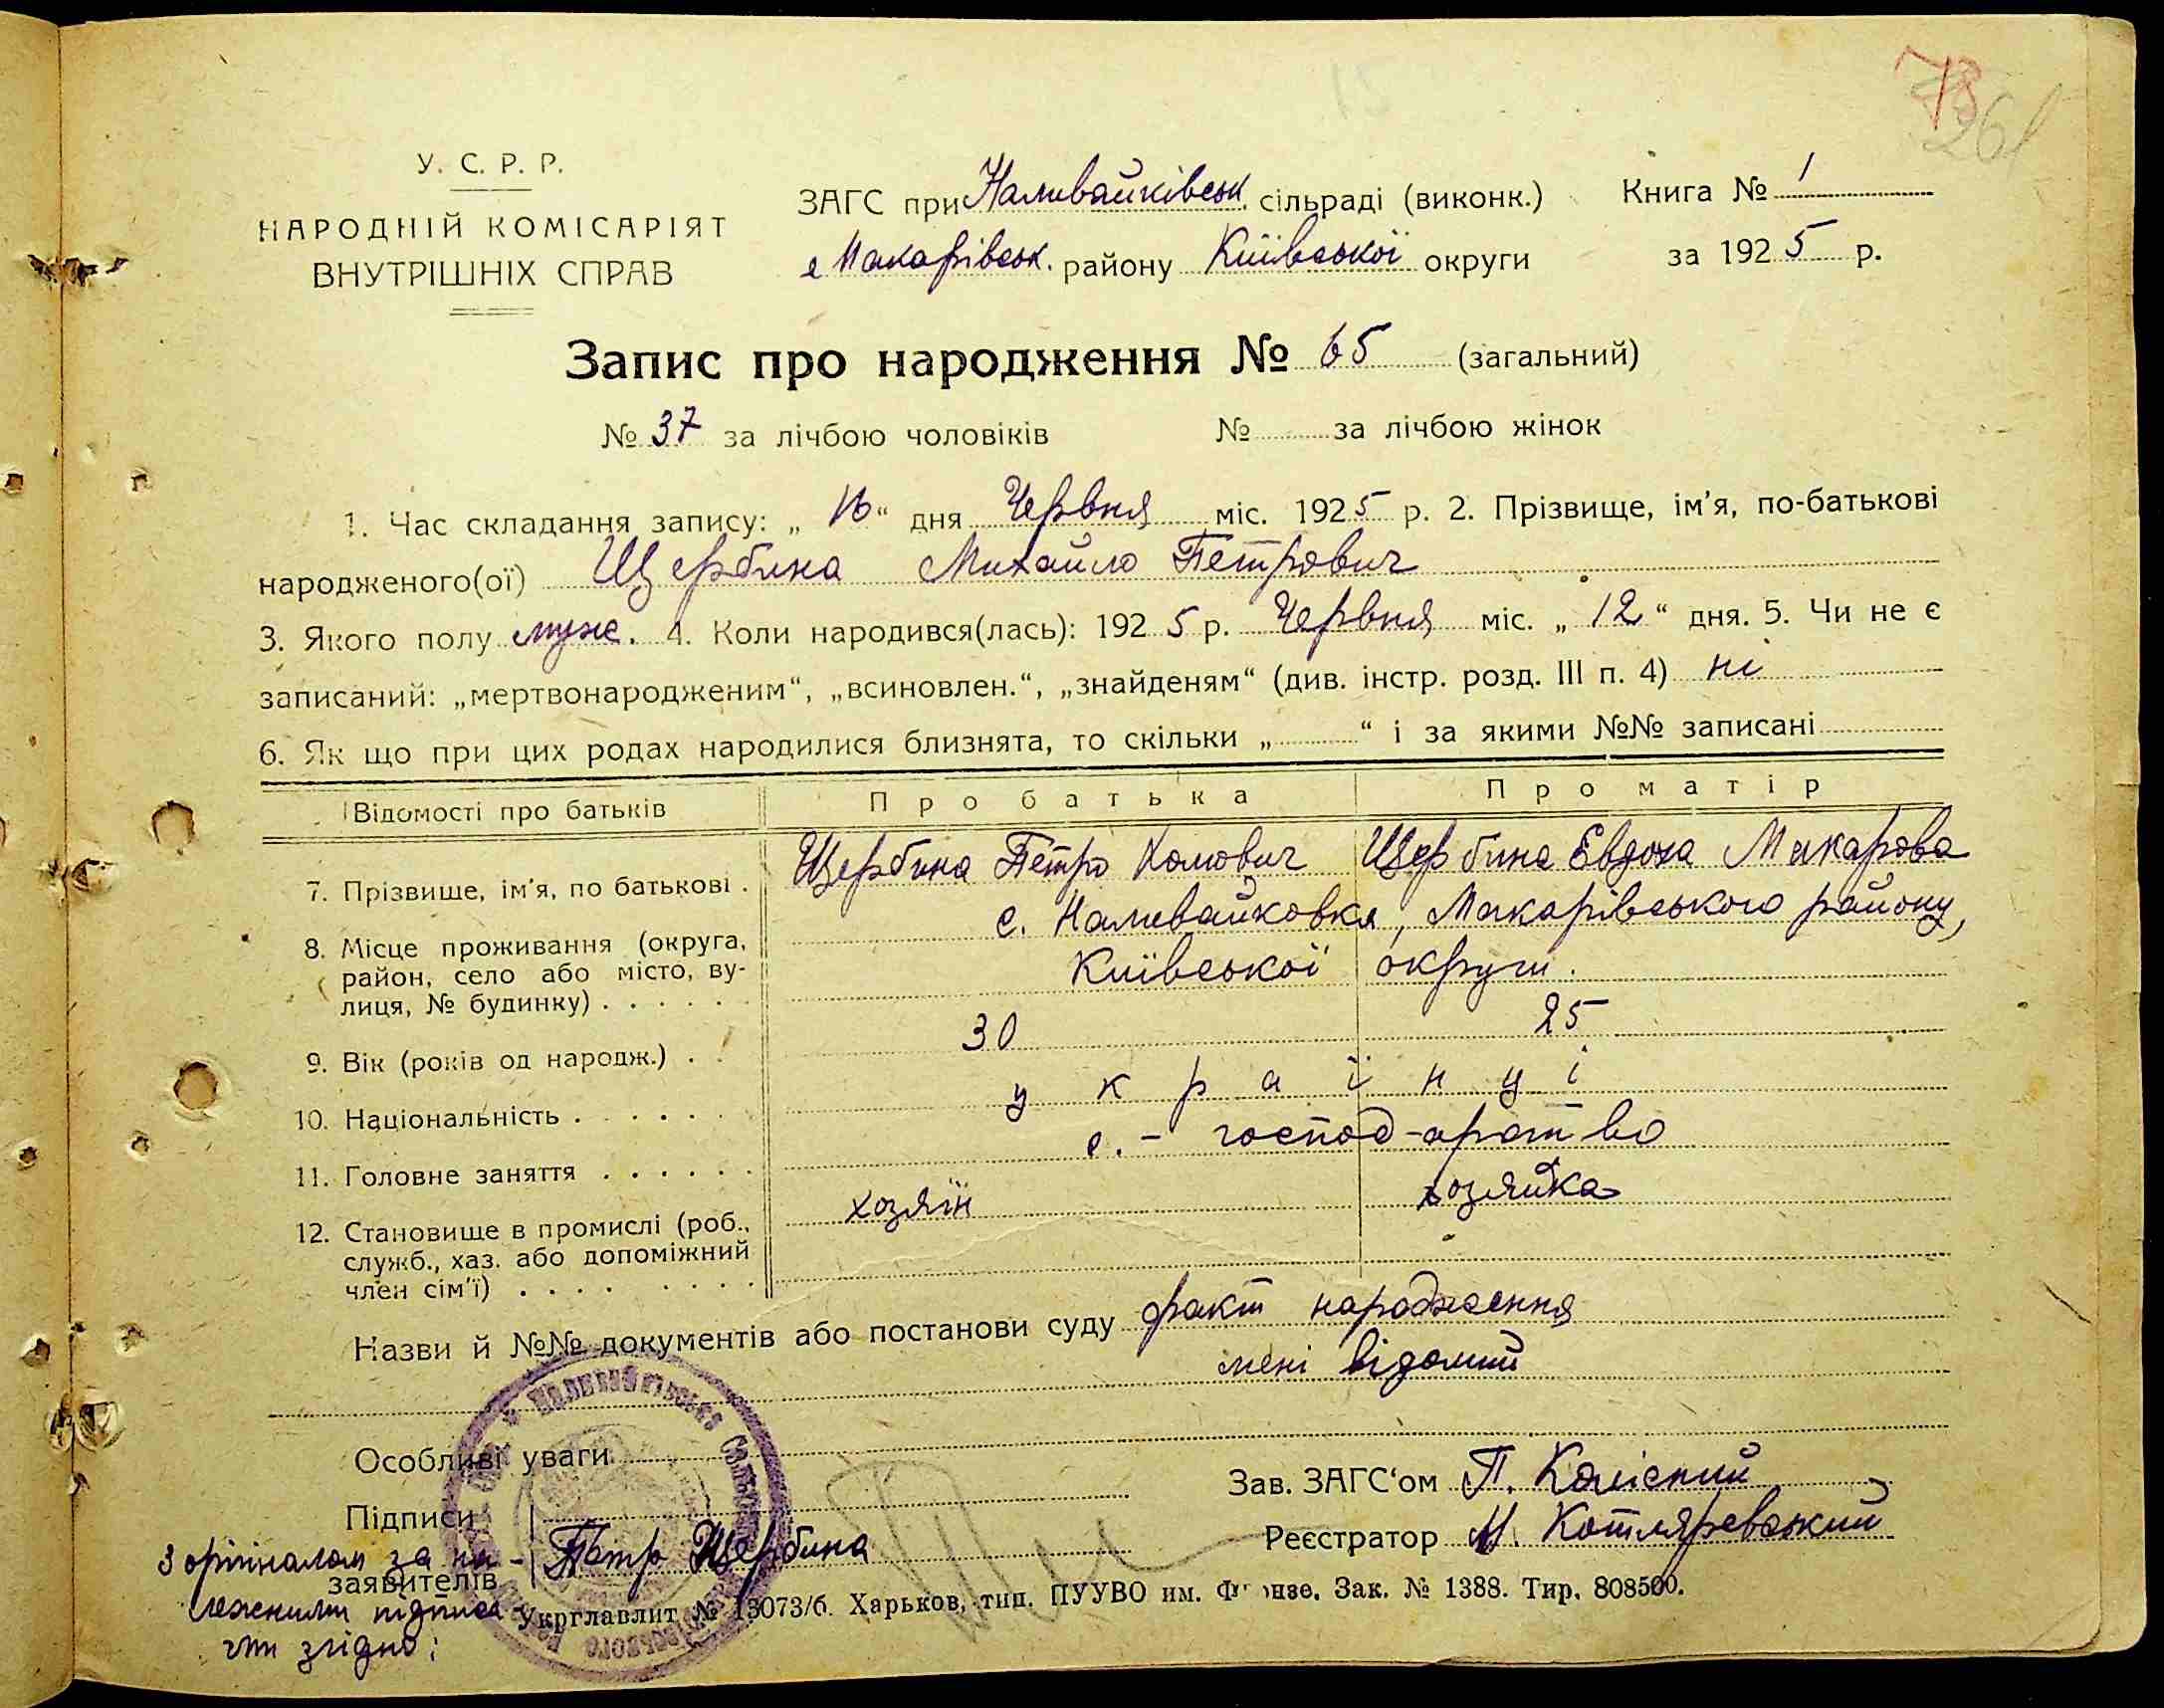 73
261
У. С. Р. Р.
НАРОДНІЙ КОМІСАРІЯТ
ВНУТРІШНІХ СПРАВ
ЗАГС при Наливайківськ. сільраді (виконк.)
Макарівськ. району Київської округи
Книга № 1
за 1925 р.
Запис про народження № 65 (загальний)
№ 37 за лічбою чоловіків № за лічбою жінок
1. Час складання запису: „ 16 “ дня Червня міс. 1925 р. 2. Прізвище, ім'я, по-батькові
народженого(ої) Щербина Михайло Петрович
3. Якого полу муж. 4. Коли народився(лась): 1925 р. Червня міс. „ 12 “ дня. 5. Чи не є
записаний: „мертвонародженим“, „всиновлен.“, „знайденям“ (див. інстр. розд. III п. 4) ні
6. Як що при цих родах народилися близнята, то скільки „ “ і за якими №№ записані
Відомості про батьків Про батька Про матір
7. Прізвище, ім'я, по батькові . Щербина Петро Щербина Евдоха Макарова
8. Місце проживання (округа, с. Наливайковка, Макарівського району,
район, село або місто, ву- Київської округи.
лиця, № будинку) . . . . . .
9. Вік (років од народж.) . . 30 25
10. Національність . . . . . . українці
11. Головне заняття . . . . . . с. - господ-арство
12. Становище в промислі (роб., хозяїн хозяйка
служб., хаз. або допоміжний
член сім'ї) . . . . . . . .
Назви й №№ документів або постанови суду факт народження
мені відомий
Особливі уваги
Зав. ЗАГС‘ом П.
Підписи
заявителів Петр Щербина
Реєстратор М. Котляревський
З оригіналом за на-
лежними підписа-
ми згідно:
Укрглавлит № 13073/б. Харьков, тип. ПУУВО им. Фрунзе. Зак. № 1388. Тир. 808500.